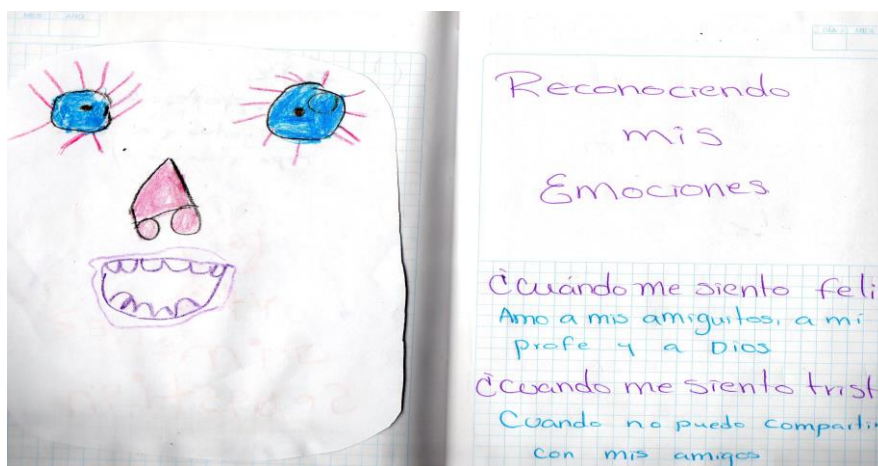 MES AÑO
DIA MES
Reconociendo
mis
Emociones
¿Cuándo me siento feli
Amo a mis amiguitos, a mi
profe y a Dios
¿Cuando me siento trist
Cuando no puedo comparti
con mis amigos